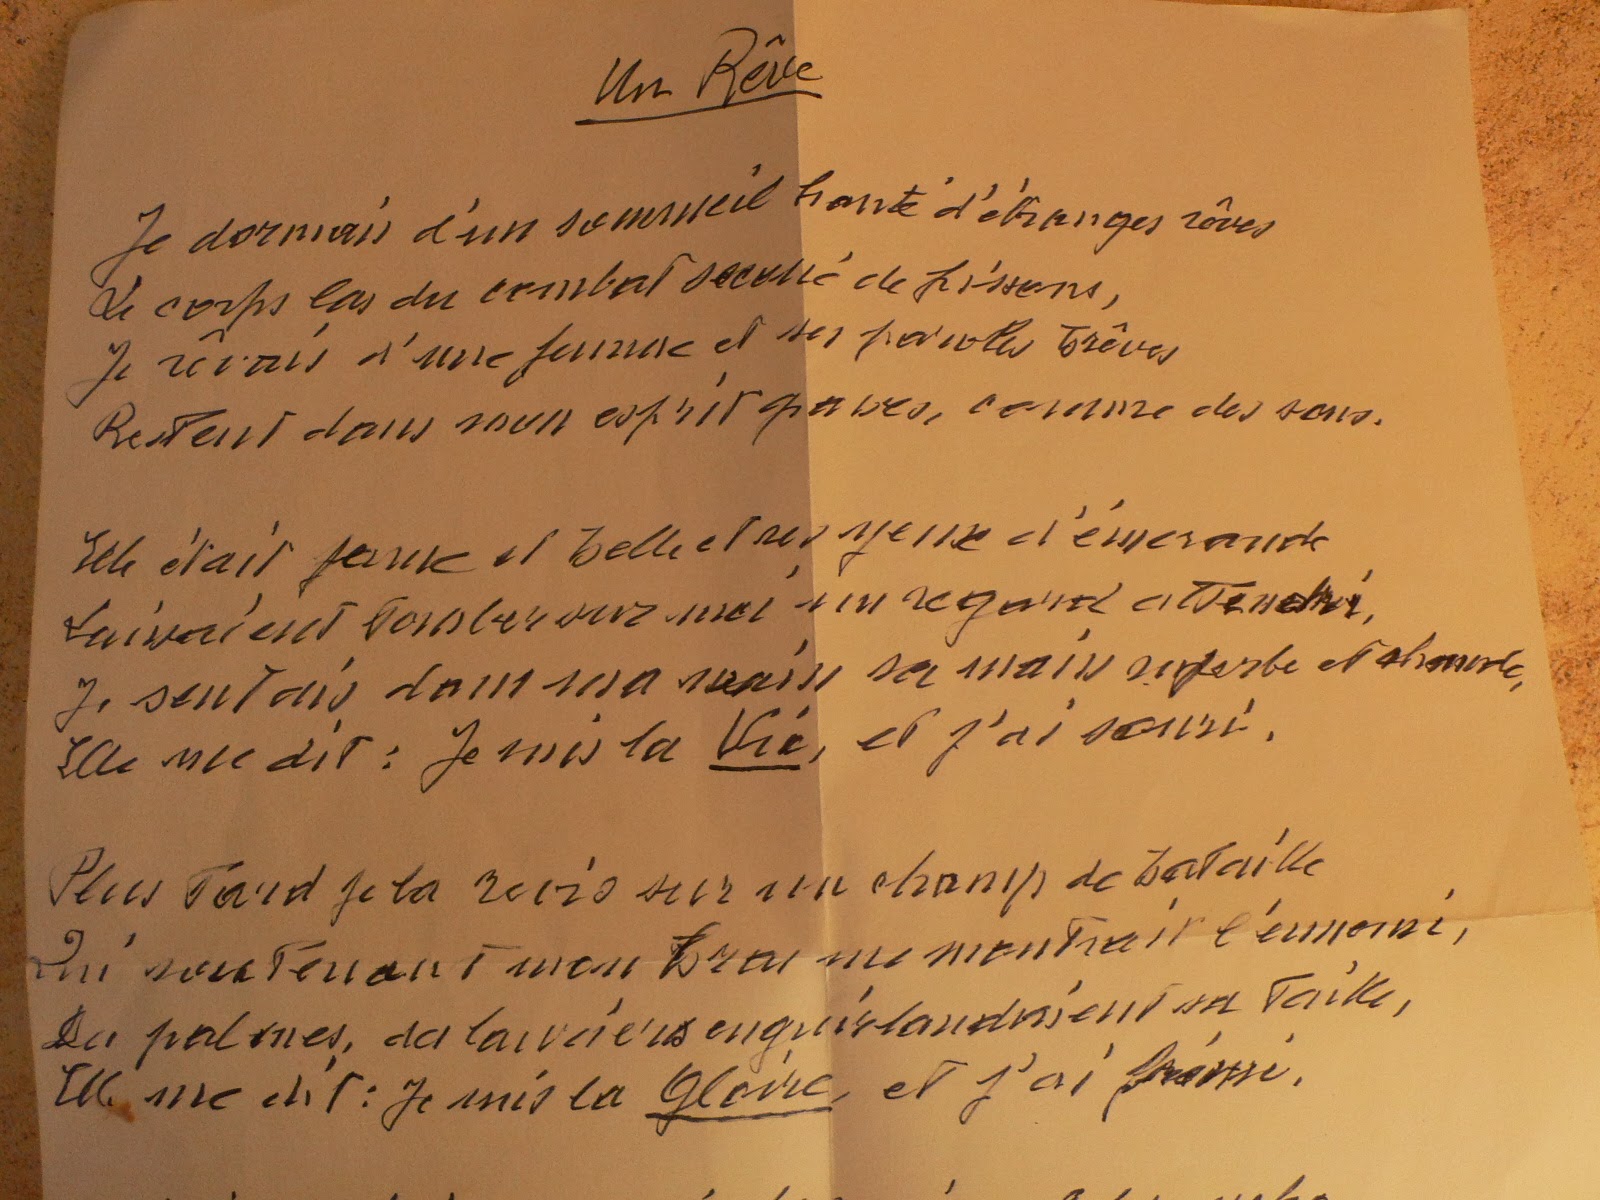 Un Rêve
Je dormais d'un sommeil hanté d'étranges rêves
Le corps las du combat secoué de frissons,
Je rêvais d'une femme et ses paroles brêves
Restent dans mon esprit graves, comme des sons.
Elle était jeune et belle et ses yeux d'émeraude
Laissaient tomber sur moi un regard attendri,
Je sentais dans ma main sa main superbe et chaude,
Elle me dit : Je suis la Vie, et j'ai souri.
Plus tard je la revis sur un champ de bataille
Qui soutenant mon bras me montrait l'ennemi,
Des palmes, des lauriers enguirlandaient sa taille,
Elle me dit : Je suis la Gloire, et j'ai frémi.